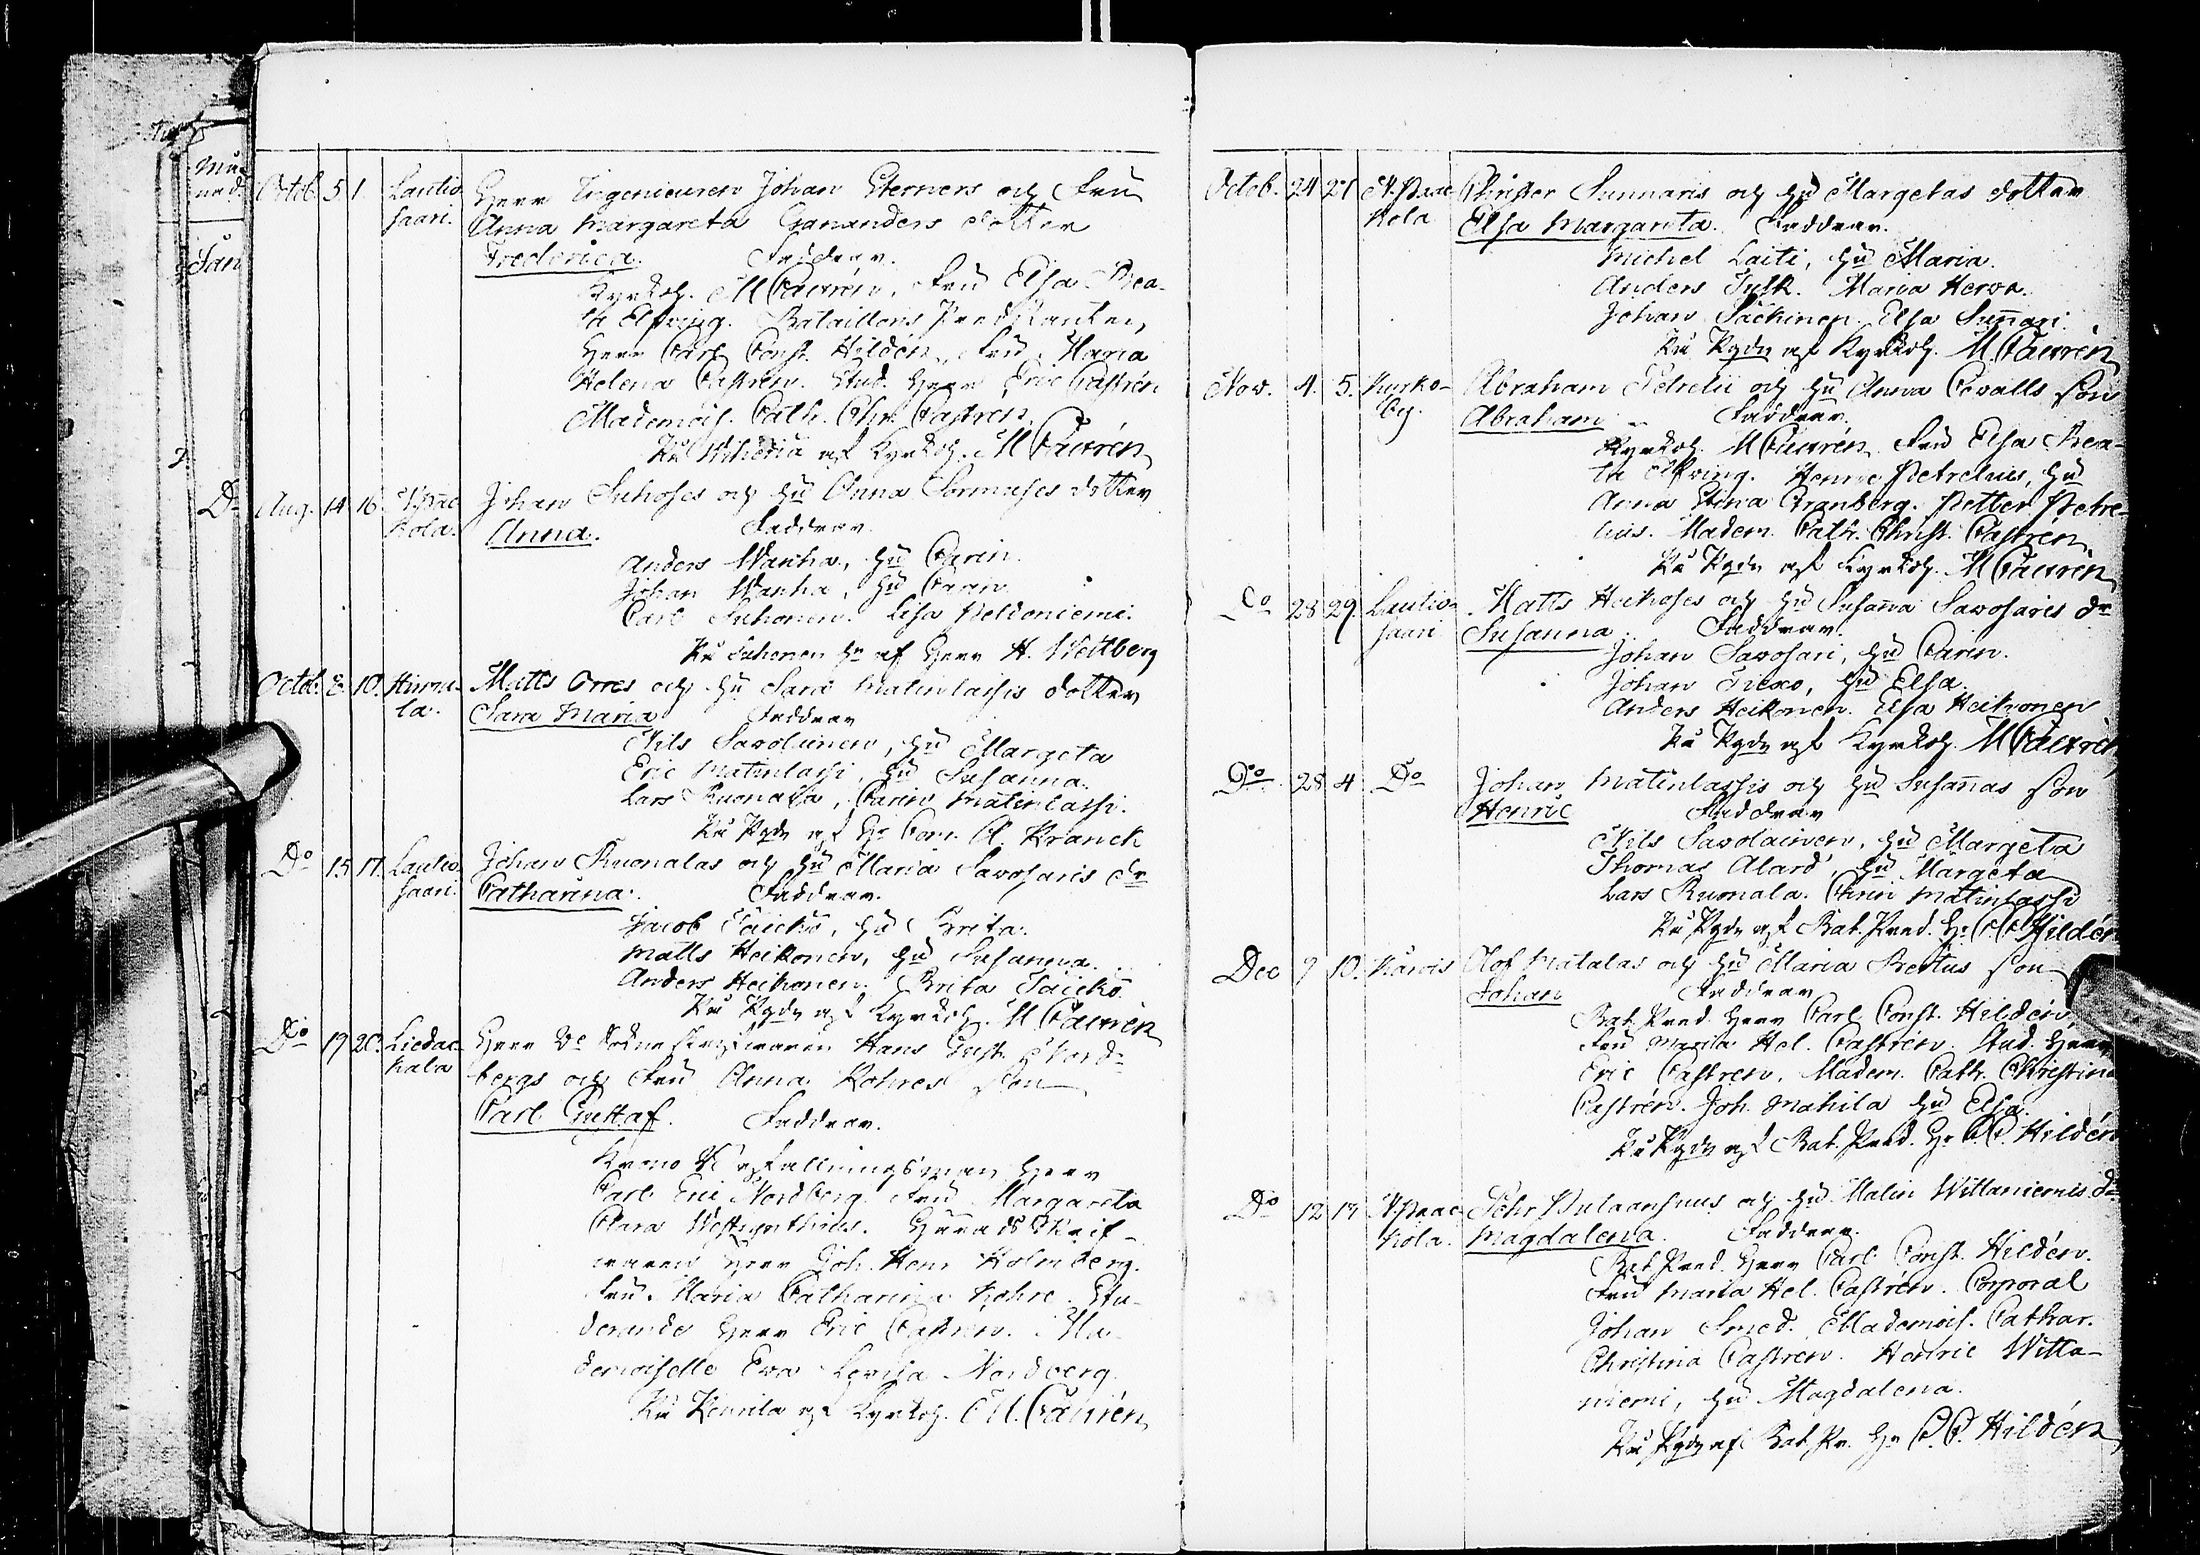 Octob. 5. 1. Lautio Herr Ingenieuren Johan Sterners och Fru
saari. Anna Margareta Gananders dotter
Frederica. Faddrar.
Kyrkoh. M Caurén, Fru Elsa Bea-
ta Elfving. Bataillons Predikanten,
Herr Carl Const. Hildén, Fru Maria
Helena Castrén. Stud. Herr Eric Castrén
Mademois. Cath. Chr. Castrén.
af Kyrkoh. M Caurén
Do Aug. 14. 16. Johan Suhoses och hu Anna Sormuses dotter
kola. Anna. Faddrar.
Anders Wanha, hu Carin.
Johan Wanha, hu Carin.
Carl Suhonen. Lisa Peldoniemi.
Suhonen af Herr H. Weitberg
Octob. 8. 10. Matts Orres och hu Sara Matinlassis dotter
la. Sara Maria Faddrar
Nils Savolainen, hu Margeta
Eric Matinlassi, hu Susanna.
Lars Ruonala, Carin Matinlassi.
af A. Kranck
Do 15 17. Lautio Johan Ruonalas och hu Maria Savosaris dr
saari. Catharina. Faddrar.
Jacob Taickö, hu Brita.
Matts Heikonen, hu Susanna.
Anders Heikonen. Brita Taickö.
af Kyrkoh. M Caurén
Do 19 20. Liedac Herr Hans Gust. Nord-
kala bergs och Fru Anna Kohres son
Carl Gustaf. Faddrar.
Krono Befallningsman Herr
Carl Eric Nordberg. Fru Margareta
Clara Herads Skrif-
waren Herr Joh. Henr Holmberg.
Fru Maria Catharina Kohre. Stu-
derande Herr Eric Castrén. Ma-
demoiselle Eva Lovisa Nordberg.
af Kyrkoh. M. Caurén
Octob. 24 27 Christer Sunnaris och hu Margetas dotter
kola Elsa Margareta. Faddrar.
Michel Laiti, hu Maria.
Anders Maria Herva.
Johan Säckinen. Elsa Suñari.
af Kyrkoh. M. Caurén
Nov. 4. 5. Kurko- Abraham Petrelii och hu Anna Cevalls son
by. Abraham Faddrar.
Kyrkoh. M Caurén. Fru Elsa Bea-
ta Elfving. Henric Petrelius, hu
Anna Stina Granberg. Petter Petre-
lius. Madem. Cath. Christ. Castrén
af Kyrkoh. M Caurén
Do 28 29. Lautio- Matts Heikoses och hu Susaña Savosaris dr
saari Susanna Faddrar.
Johan Savosari, hu Carin.
Johan hu Elsa.
Anders Heikonen. Elsa Heikonen
af Kyrkoh. M Caurén
Do 28 4 Do Johan Matinlassis och hu Susañas son
Henric Faddrar
Nils Savolainen, hu Margeta
Thomas Alard, hu Margeta
Lars Ruonala. Carin Matinlassi
af Bat. Pred. Hr C. C. Hildén
Dec 9 10. Olof Matalas och hu Maria son
Johan Faddrar
Bat. Pred. Herr Carl Const. Hildén,
Fru Maria Hel. Castrén. Stud. Herr
Eric Castrén. Madem. Cath. Christina
Castrén. Joh. Mahila hu Elsa.
af Bat. Pred. Hr C. C. Hildén
Do 12 17 och hu Malin Willaniemis dr
kola. Magdalena. Faddrar.
Bat. Pred. Herr Carl Const. Hildén.
Fru Maria Hel. Castrén. Corporal
Johan Smed. Mademois. Cathar.
Christina Castrén. Henric Willa-
niemi, hu Magdalena.
af Bat. Pr. Hr C. C. Hildén